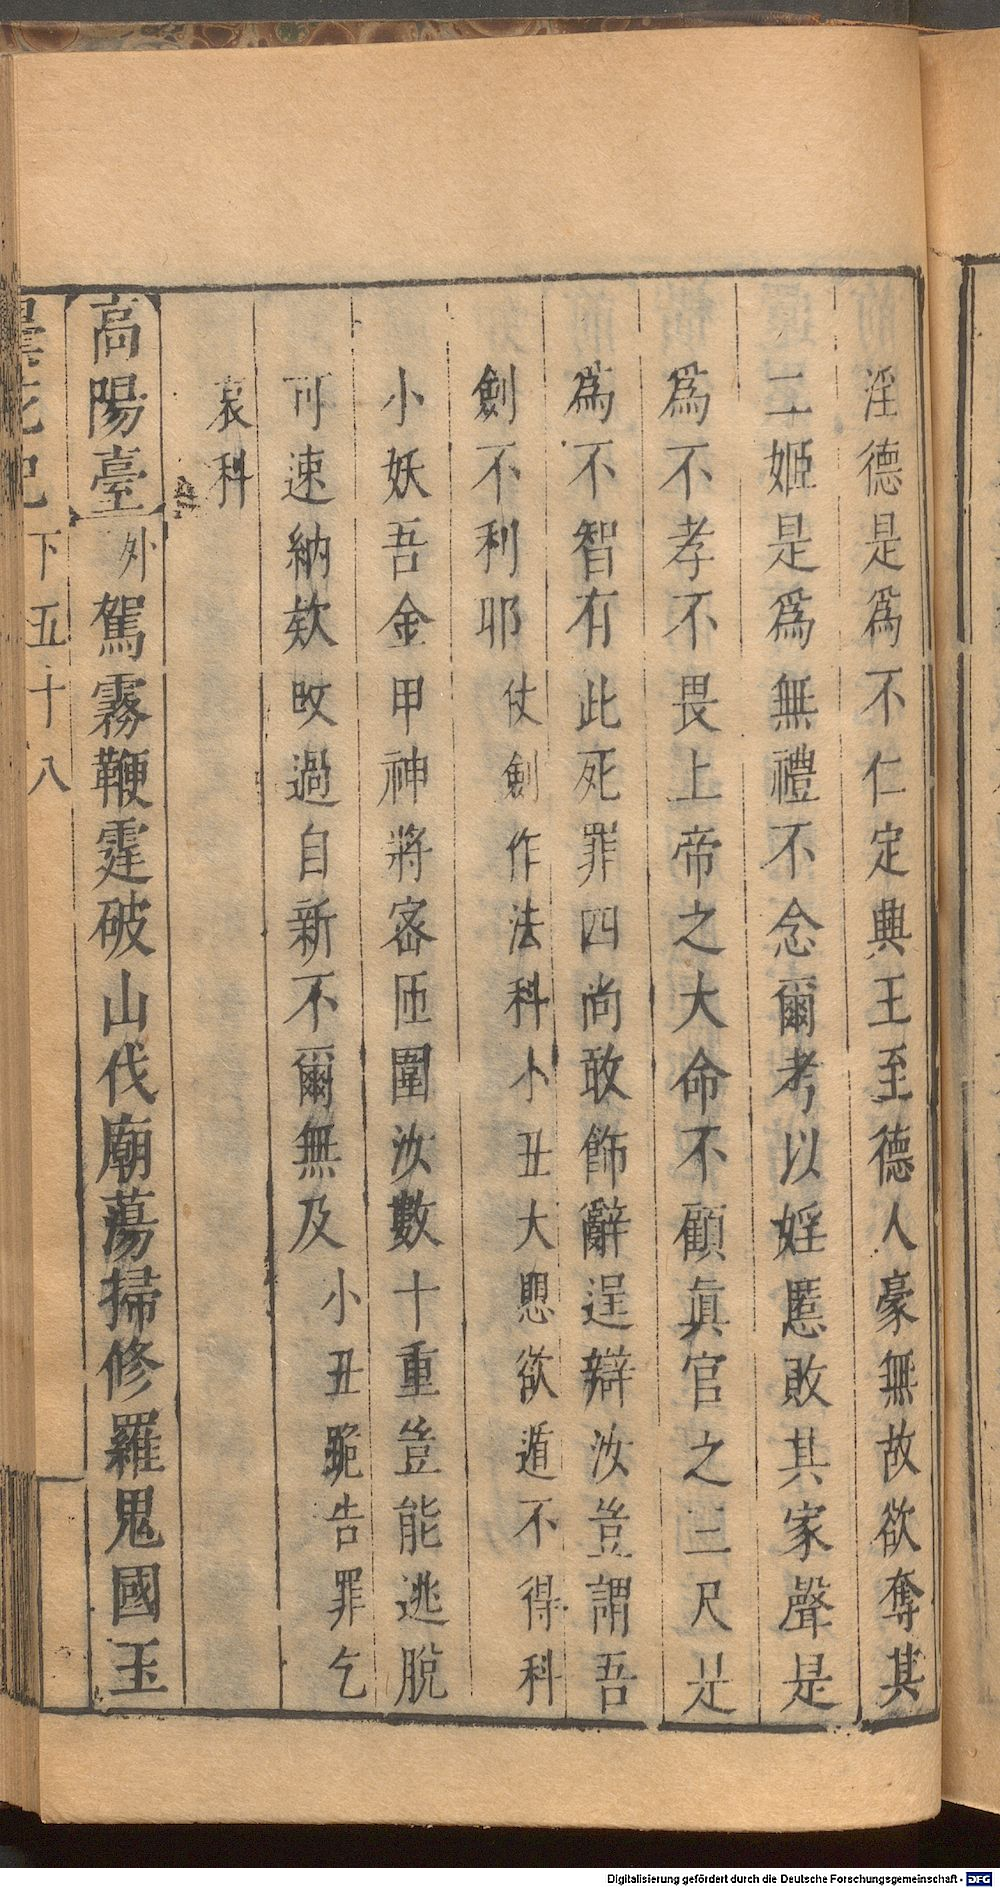 淫德是爲不仁定興王至德人豪無故欲奪其
二姬是爲無禮不念爾考以婬慝敗其家聲是
爲不孝不畏上帝之大命不顧眞官之三尺是
爲不智有此死罪四尚敢飾辭逞辯汝豈謂吾
劍不利耶仗劍作法科小丑大䀠欲遁不得科
小妖吾金甲神將密匝圍汝數十重豈能逃脫
可速納欵攺過自新不爾無及小丑跪告罪乞
哀科
高陽臺外駕霧鞭霆破山伐廟蕩掃修羅鬼國玉
曇花記下五十八
Digitalisierung gefördert durch die Deutsche Forschungsgemeinschaft - DFG